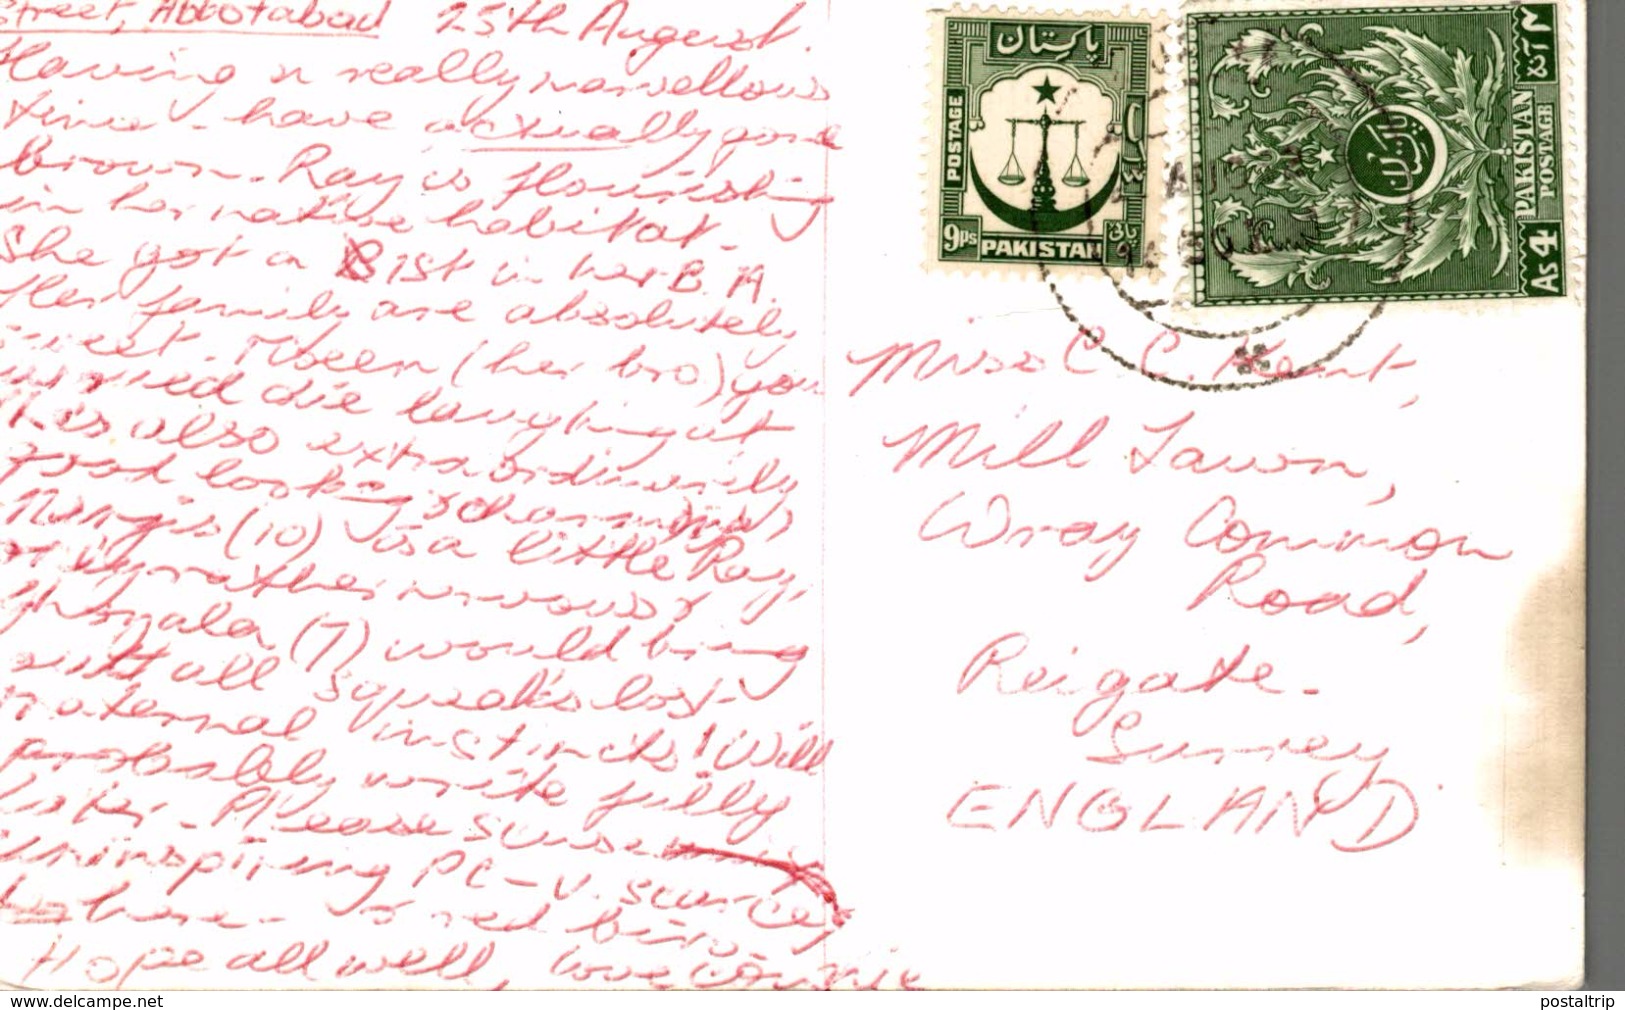 Street, Abbotabad 25th August.
Having a really marvellous
time - have actually gone
brown. Ray is flourishing
in her native habitat.
She got a 1st in her B.A.
Her family are absolutely
sweet. (her bro) you
die laughing at
& is also extraordinarily
good looking & charming,
Nargis (10) is a little Ray,
rather nervous &
Ghazala (7) would bring
out all Squeak's lost
maternal instincts! Will
probably write fully
later. Please
uninspiring PC - v. scarce
here - & red biro
Hope all well, love Connie
پاکستان
POSTAGE
9ps
PAKISTAN
پائی
پاکستان
PAKISTAN
POSTAGE
As 4
۴ آنہ
AUG
Miss C. C. Kent,
Mill Lawn,
Wray Common
Road,
Reigate.
Surrey
ENGLAND
www.delcampe.net
postaltrip